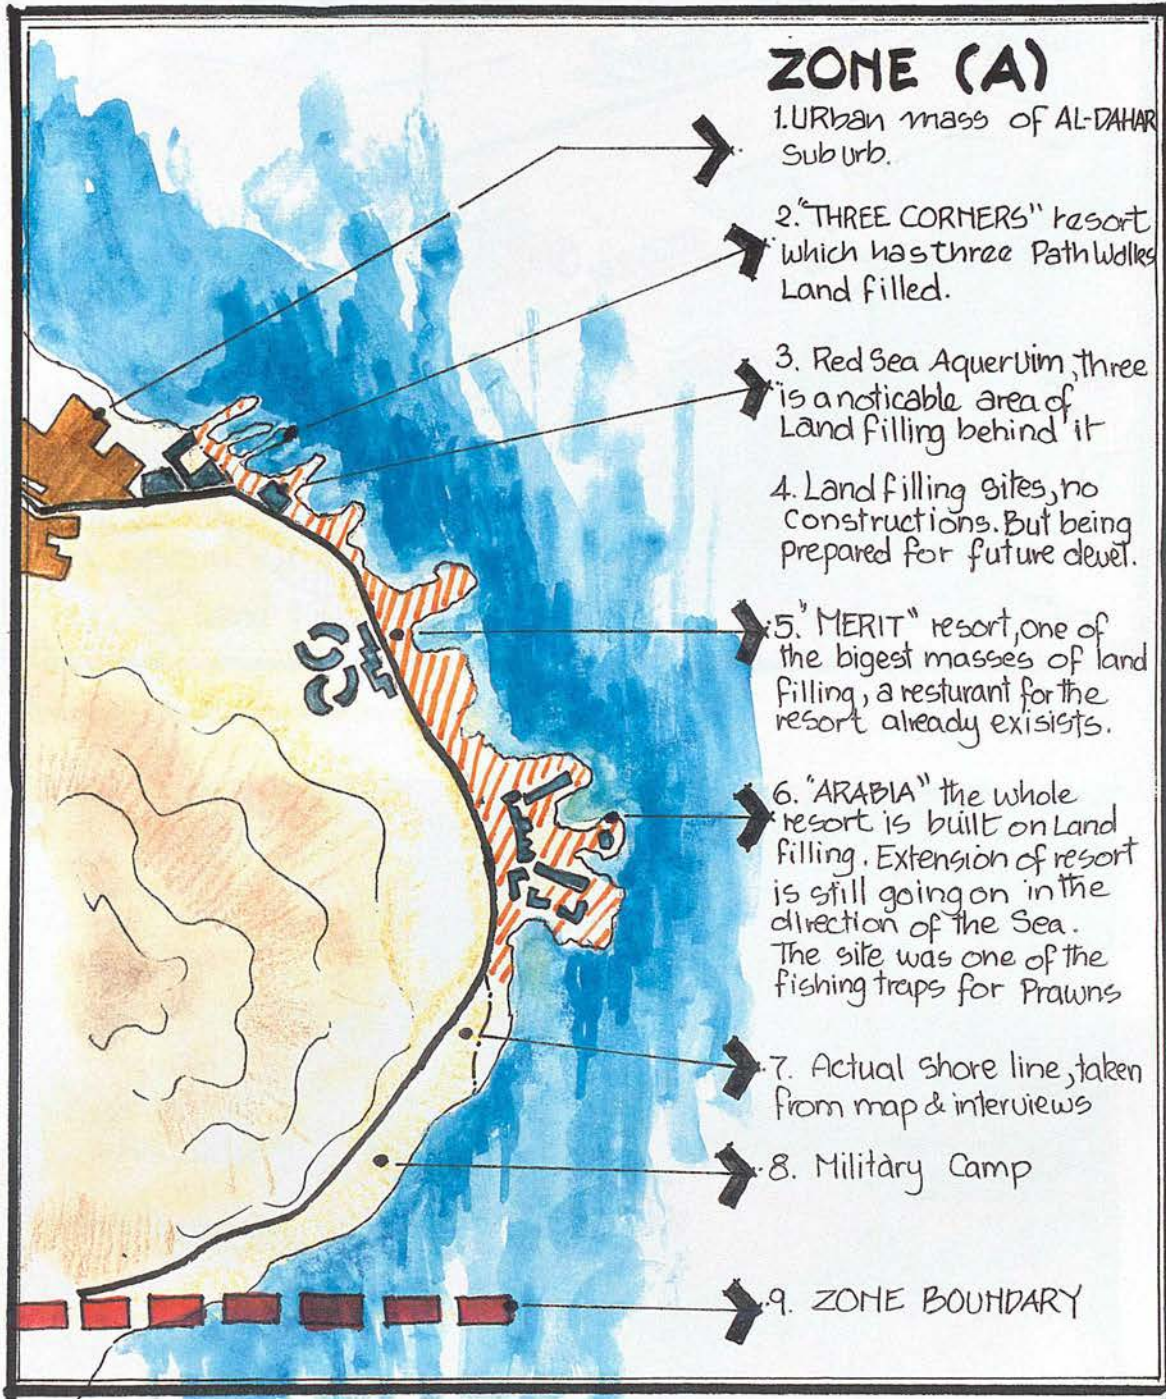 ZONE (A)
1. URban mass of AL-DAHAR
Suburb.
2. "THREE CORNERS" resort
which has three Path Walks
Land filled.
3. Red Sea Aqueruim, three
is a noticable area of
Land filling behind it
4. Land filling sites, no
Constructions. But being
Prepared for future devel.
5. "MERIT" resort, one of
the bigest masses of land
filling, a resturant for the
resort already exisists.
6. "ARABIA" the whole
resort is built on Land
filling. Extension of resort
is still going on in the
direction of the Sea.
The site was one of the
fishing traps for Prawns
7. Actual Shore line, taken
from map & interviews
8. Military Camp
9. ZONE BOUNDARY